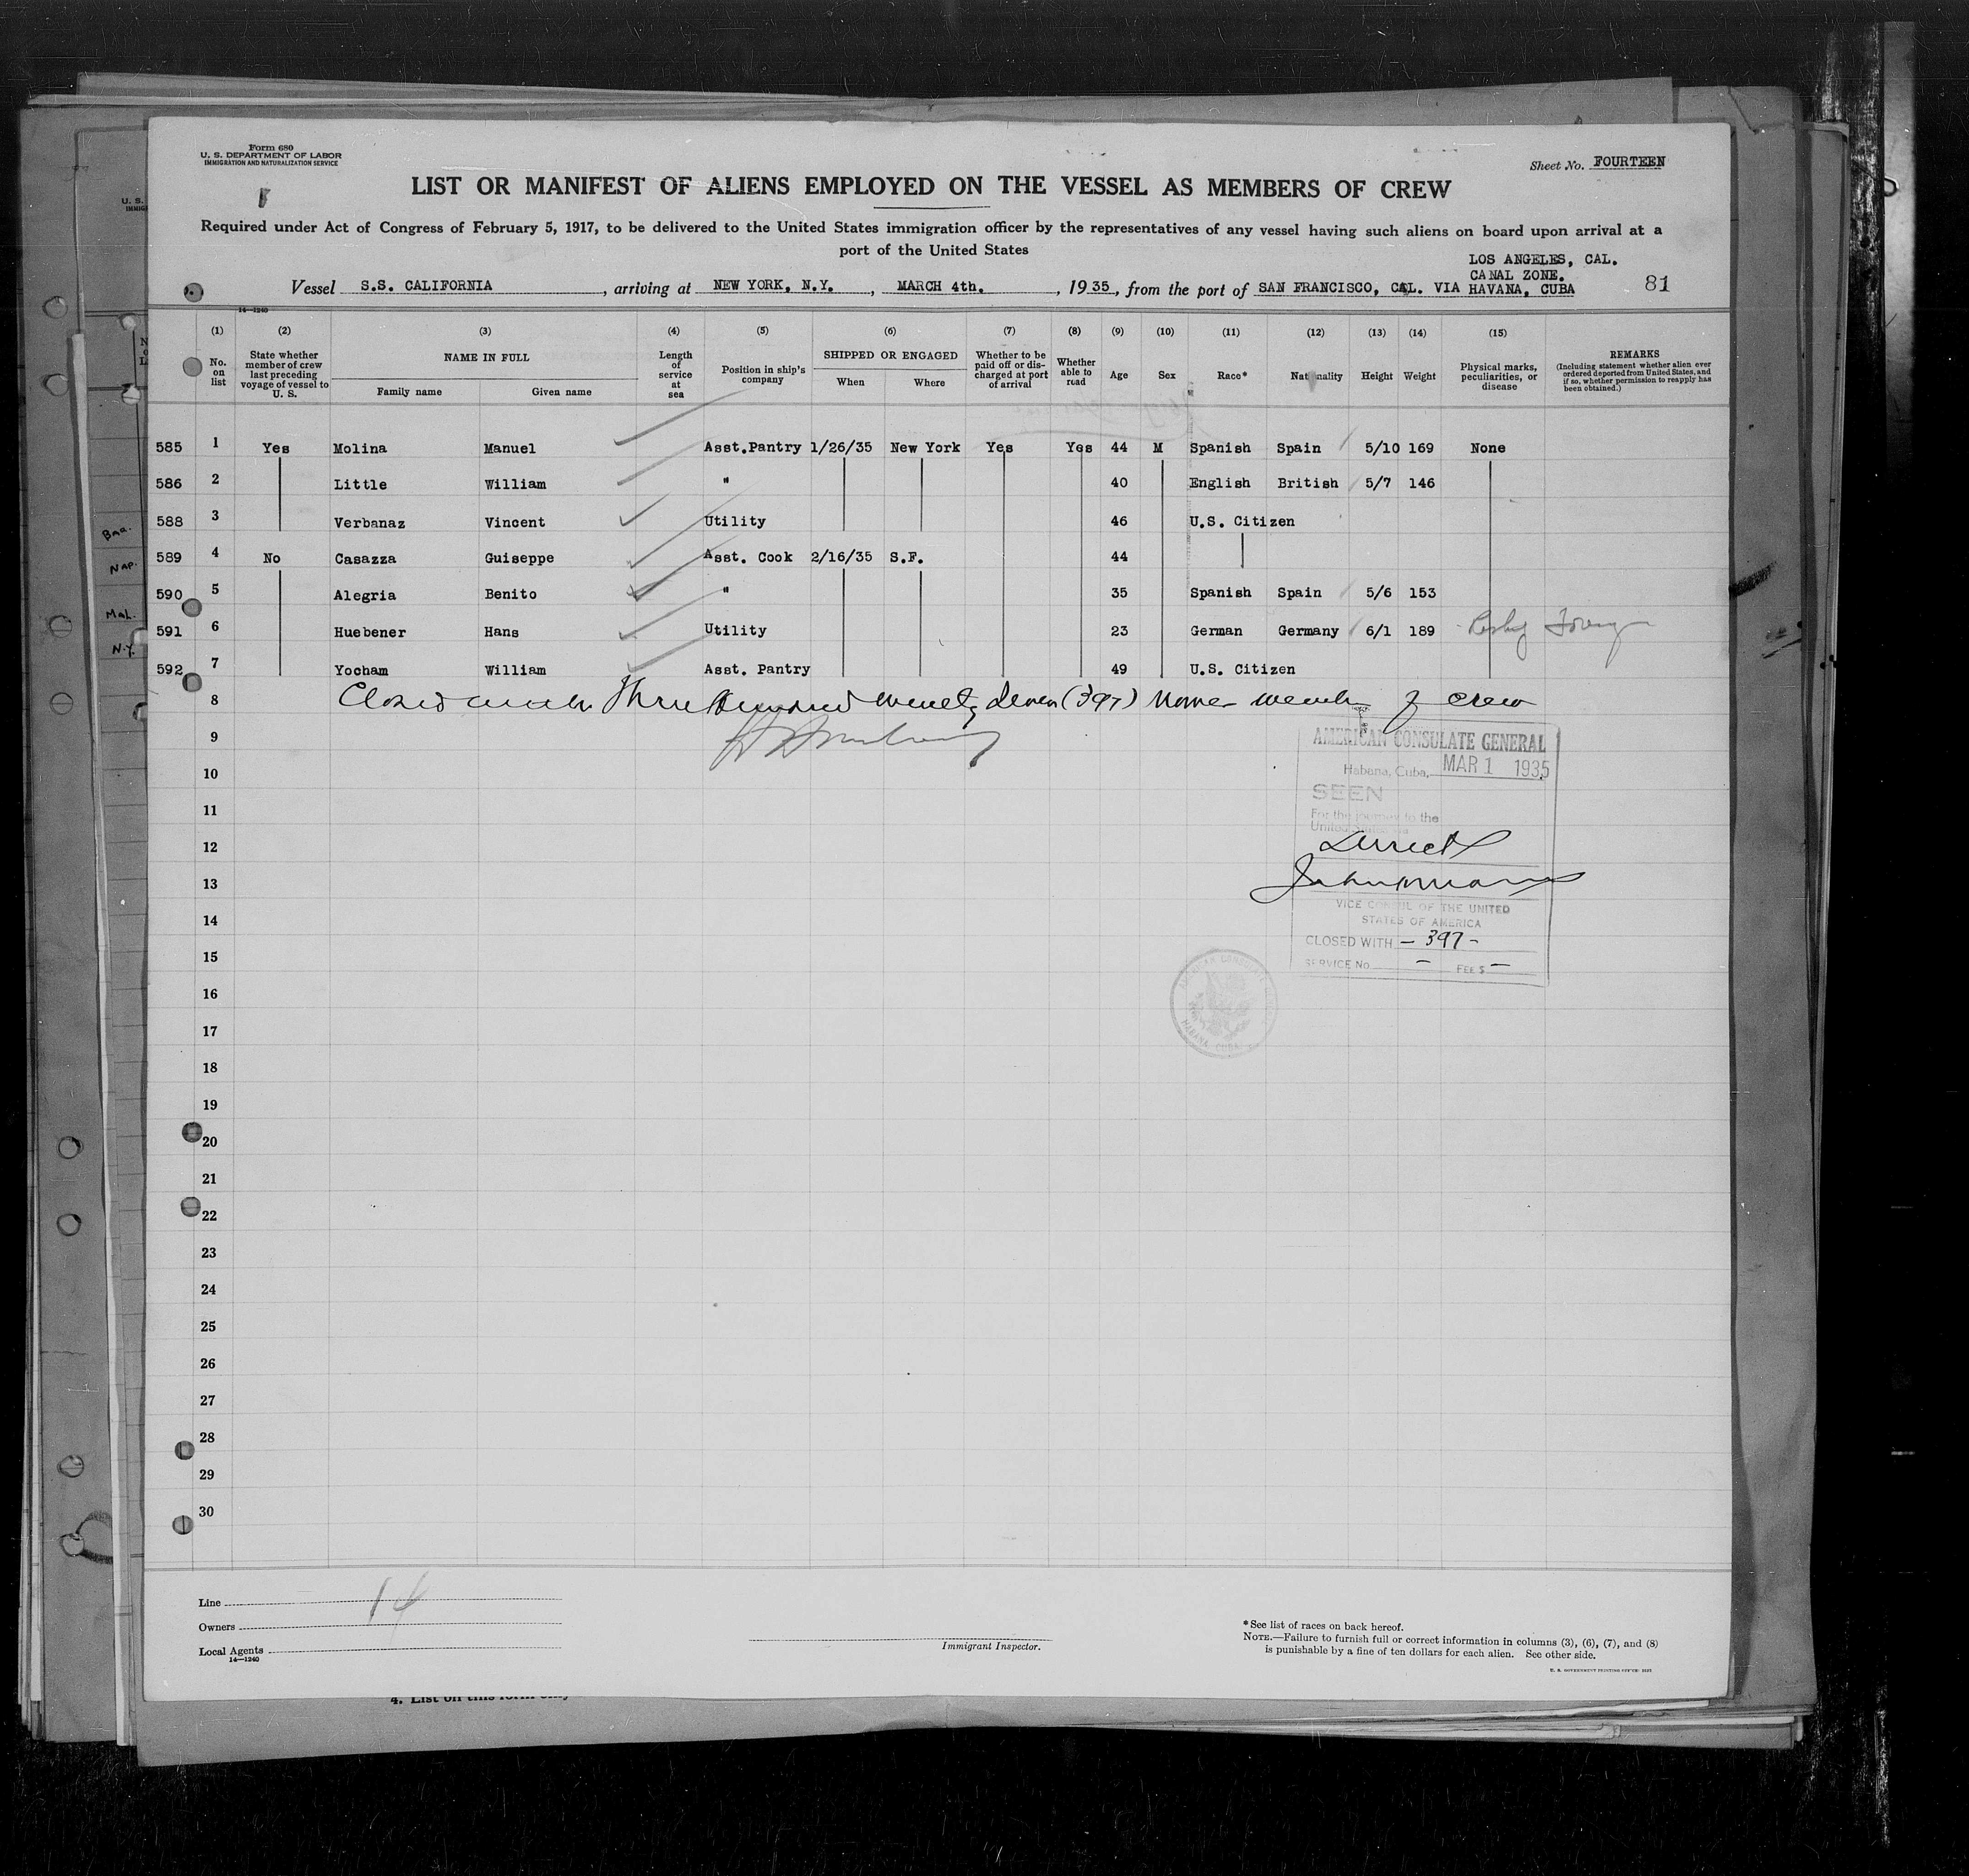 Form 680
U. S. DEPARTMENT OF LABOR
IMMIGRATION AND NATURALIZATION SERVICE
Sheet No. FOURTEEN
LIST OR MANIFEST OF ALIENS EMPLOYED ON THE VESSEL AS MEMBERS OF CREW
Required under Act of Congress of February 5, 1917, to be delivered to the United States immigration officer by the representatives of any vessel having such aliens on board upon arrival at a
port of the United States
LOS ANGELES, CAL.
CANAL ZONE.
Vessel S.S. CALIFORNIA, arriving at NEW YORK, N.Y., MARCH 4th., 1935, from the port of SAN FRANCISCO, CAL. VIA HAVANA, CUBA 81
14—1240
(1) (2) (3) (4) (5) (6) (7) (8) (9) (10) (11) (12) (13) (14) (15)
No. on list
State whether member of crew last preceding voyage of vessel to U. S.
NAME IN FULL
Family name Given name
Length of service at sea
Position in ship's company
SHIPPED OR ENGAGED
When Where
Whether to be paid off or discharged at port of arrival
Whether able to read
Age
Sex
Race*
Nationality
Height
Weight
Physical marks, peculiarities, or disease
REMARKS
(Including statement whether alien ever ordered deported from United States, and if so, whether permission to reapply has been obtained.)
585 1 Yes Molina Manuel Asst.Pantry 1/26/35 New York Yes Yes 44 M Spanish Spain 5/10 169 None
586 2 Little William " 40 English British 5/7 146
588 3 Verbanaz Vincent Utility 46 U.S. Citizen
589 4 No Casazza Guiseppe Asst. Cook 2/16/35 S.F. 44
590 5 Alegria Benito " 35 Spanish Spain 5/6 153
591 6 Huebener Hans Utility 23 German Germany 6/1 189
592 7 Yocham William Asst. Pantry 49 U.S. Citizen
8 Closed Three Hundred ninety seven (397) of crew
9
AMERICAN CONSULATE GENERAL
10
Habana, Cuba, MAR 1 1935
SEEN
11
For the journey to the
United States via
12 Direct
13
VICE CONSUL OF THE UNITED
14
STATES OF AMERICA
CLOSED WITH — 397 —
15
SERVICE No. — FEE $ —
AMERICAN CONSULATE GENERAL
HABANA, CUBA
16
17
18
19
20
21
22
23
24
25
26
27
28
29
30
Line 14
Owners
Local Agents
14—1240
Immigrant Inspector.
*See list of races on back hereof.
NOTE.—Failure to furnish full or correct information in columns (3), (6), (7), and (8)
is punishable by a fine of ten dollars for each alien. See other side.
4. List on this form only
Baa.
Nap.
Mal.
N.Y.